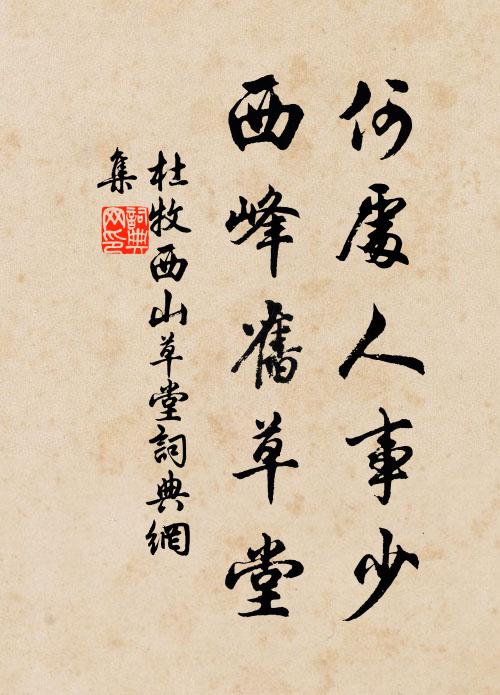 何處人事少
西峰舊草堂
杜牧西山草堂詞典網
集
詞典
网印